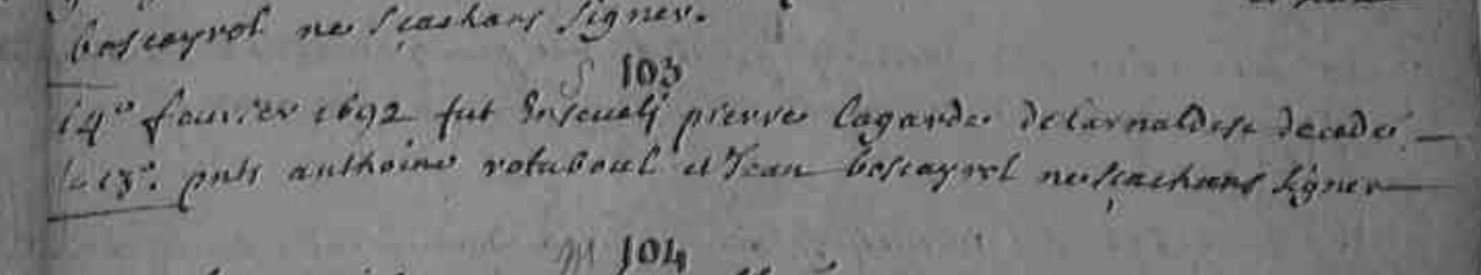 boscayrol ne sçachans signer.
S 103
14e feurier 1692 fut Enseueli pierre lagarde de decede
le 13e. pnts anthoine rotaboul et Jean boscayrol ne sçachans signer
M 104